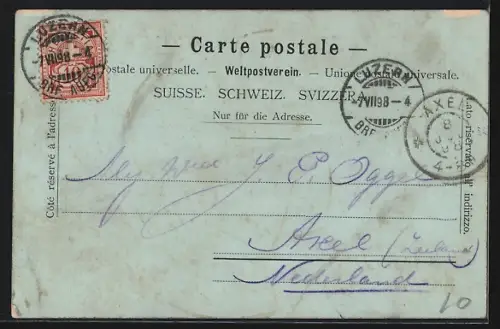 LUZERN
-7 VII 98-4
BRF. AUFG.
— Carte postale —
postale universelle. — Weltpostverein. — Unione postale universale.
SUISSE. SCHWEIZ. SVIZZERA.
Nur für die Adresse.
LUZERN
-7 VII 98-4
BRF.
AXEL
Côté réservé à l'adresse
Lato riservato all' indirizzo.
J. E. Oggel
Axel (Zeeland)
Nederland
10